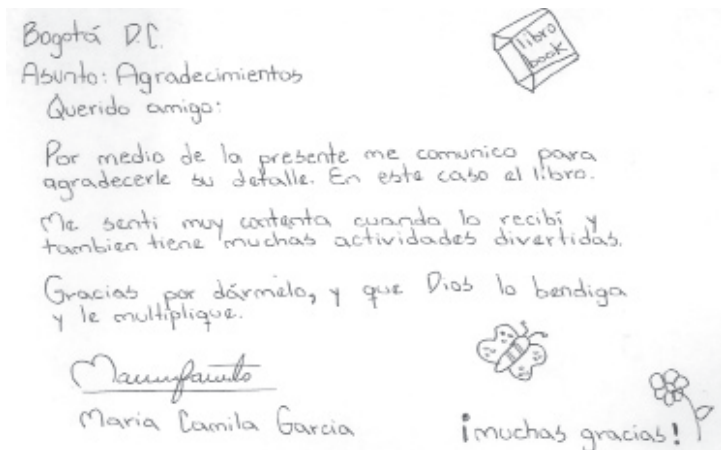 Bogotá D.C.
libro
book
Asunto: Agradecimientos
Querido amigo:
Por medio de la presente me comunico para
agradecerle su detalle. En este caso el libro.
Me senti muy contenta cuando lo recibí y
tambien tiene muchas actividades divertidas.
Gracias por dármelo, y que Dios lo bendiga
y le multiplique.
María Camila Garcia
¡muchas gracias!